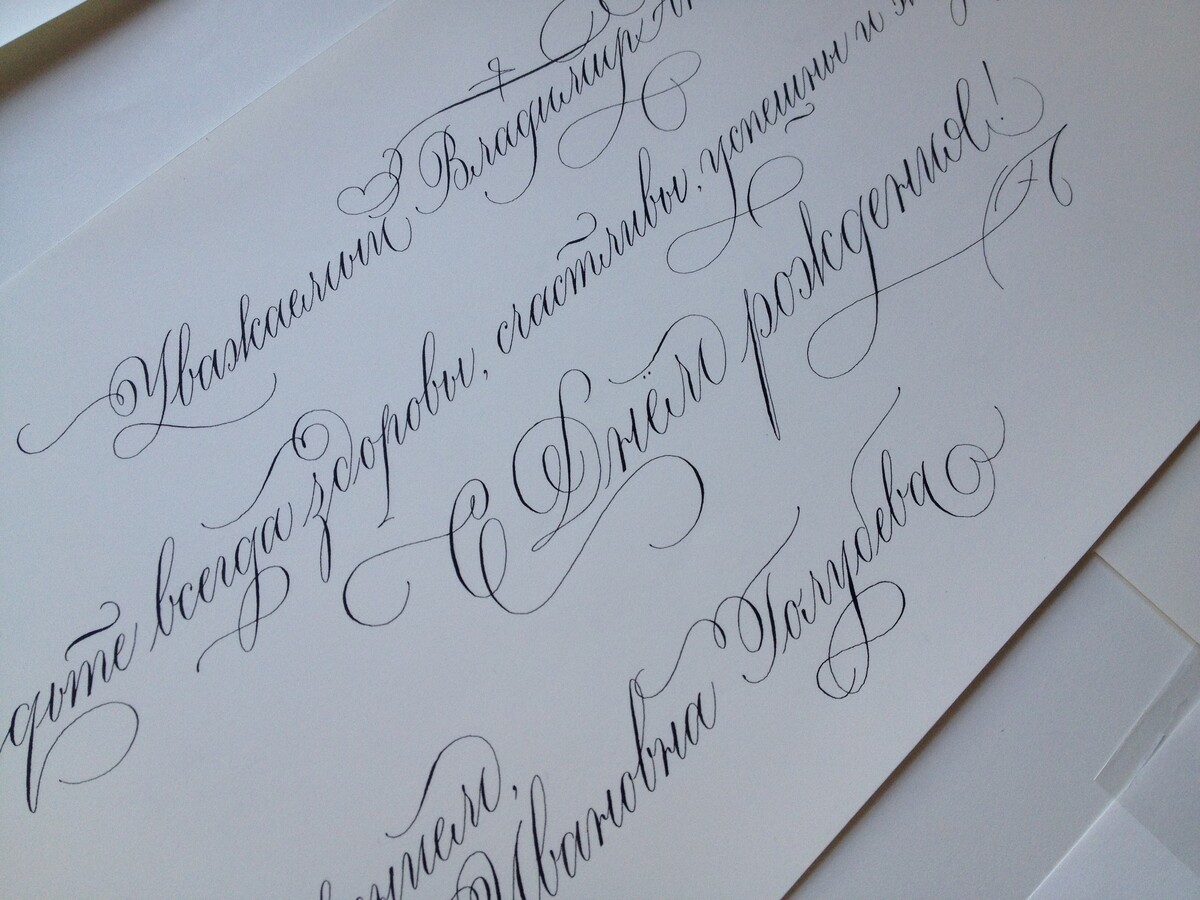 Уважаемый Владимир
дьте всегда здоровы, счастливы, успешны и
С Днём рождения!
Ивановна Голубева